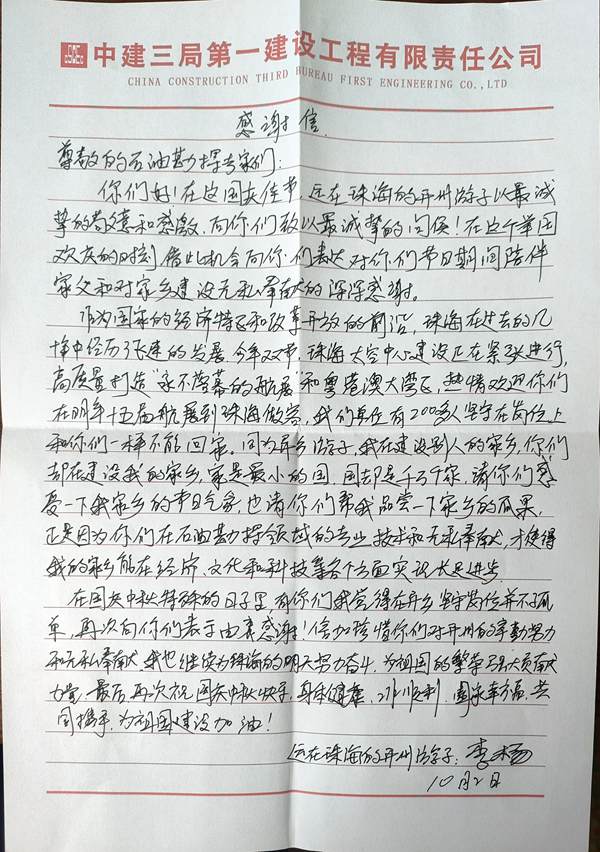 中建三局第一建设工程有限责任公司
CHINA CONSTRUCTION THIRD BUREAU FIRST ENGINEERING CO.,LTD
感谢信
尊敬的石油勘探专家们：
你们好！在这国庆佳节，远在珠海的开州游子以最诚
挚的敬意和感激，向你们致以最诚挚的问候！在这个举国
欢庆的时刻，借此机会向你们表达对你们节日期间陪伴
家父和对家乡建设无私奉献的深深感谢。
作为国家的经济特区和改革开放的前沿，珠海在过去的几
十年中经历了快速的发展，今年双节，珠海太空中心建设正在紧张进行，
高质量打造“永不落幕的航展”和粤港澳大湾区，热情欢迎你们
在明年十五届航展到珠海做客，我们单位有2000多人坚守在岗位上
和你们一样不能回家。同为异乡游子，我在建设别人的家乡，你们
却在建设我的家乡，家是最小的国，国却是千万个家，请你们感
受一下我家乡的节日气氛，也请你们帮我品尝一下家乡的瓜果，
正是因为你们在石油勘探领域的专业技术和无私奉献，才使得
我的家乡能在经济、文化和科技等各个方面实现长足进步
在国庆中秋特殊的日子里，有你们我觉得在异乡坚守岗位并不孤
单，再次向你们表示由衷感谢！倍加珍惜你们对开州的辛勤努力
和无私奉献，我也继续为珠海的明天努力奋斗，为祖国的繁荣强大贡献
力量，最后，再次祝国庆中秋快乐，身体健康，工作顺利，阖家幸福，共
同携手，为祖国建设加油！
远在珠海的开州游子：李杨
10月2日